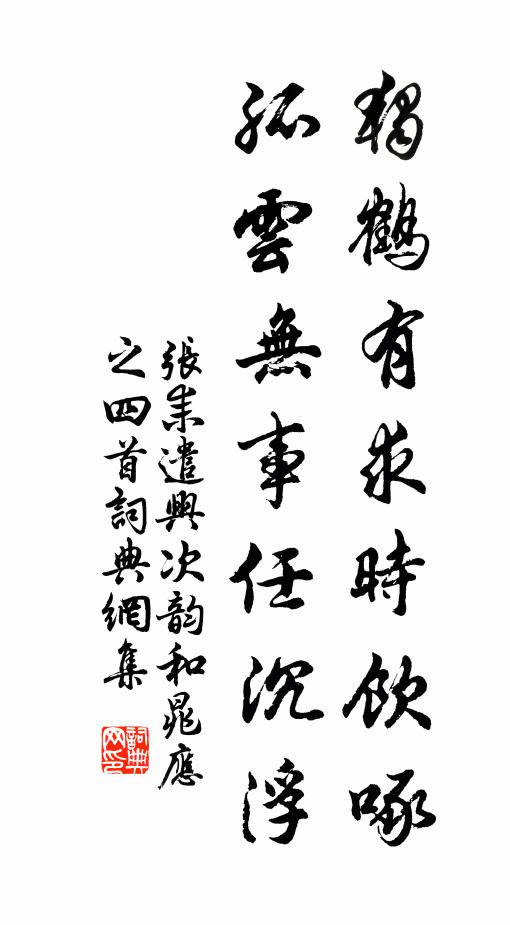 獨鶴有求時飲啄
孤雲無事任沉浮
張耒遣興次韵和晁應
之四首詞典網集
詞典網印